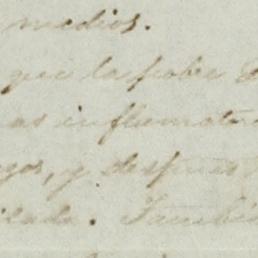 medios.
que la pobre
as inflamator
gos, y despues
ilada. Tambie